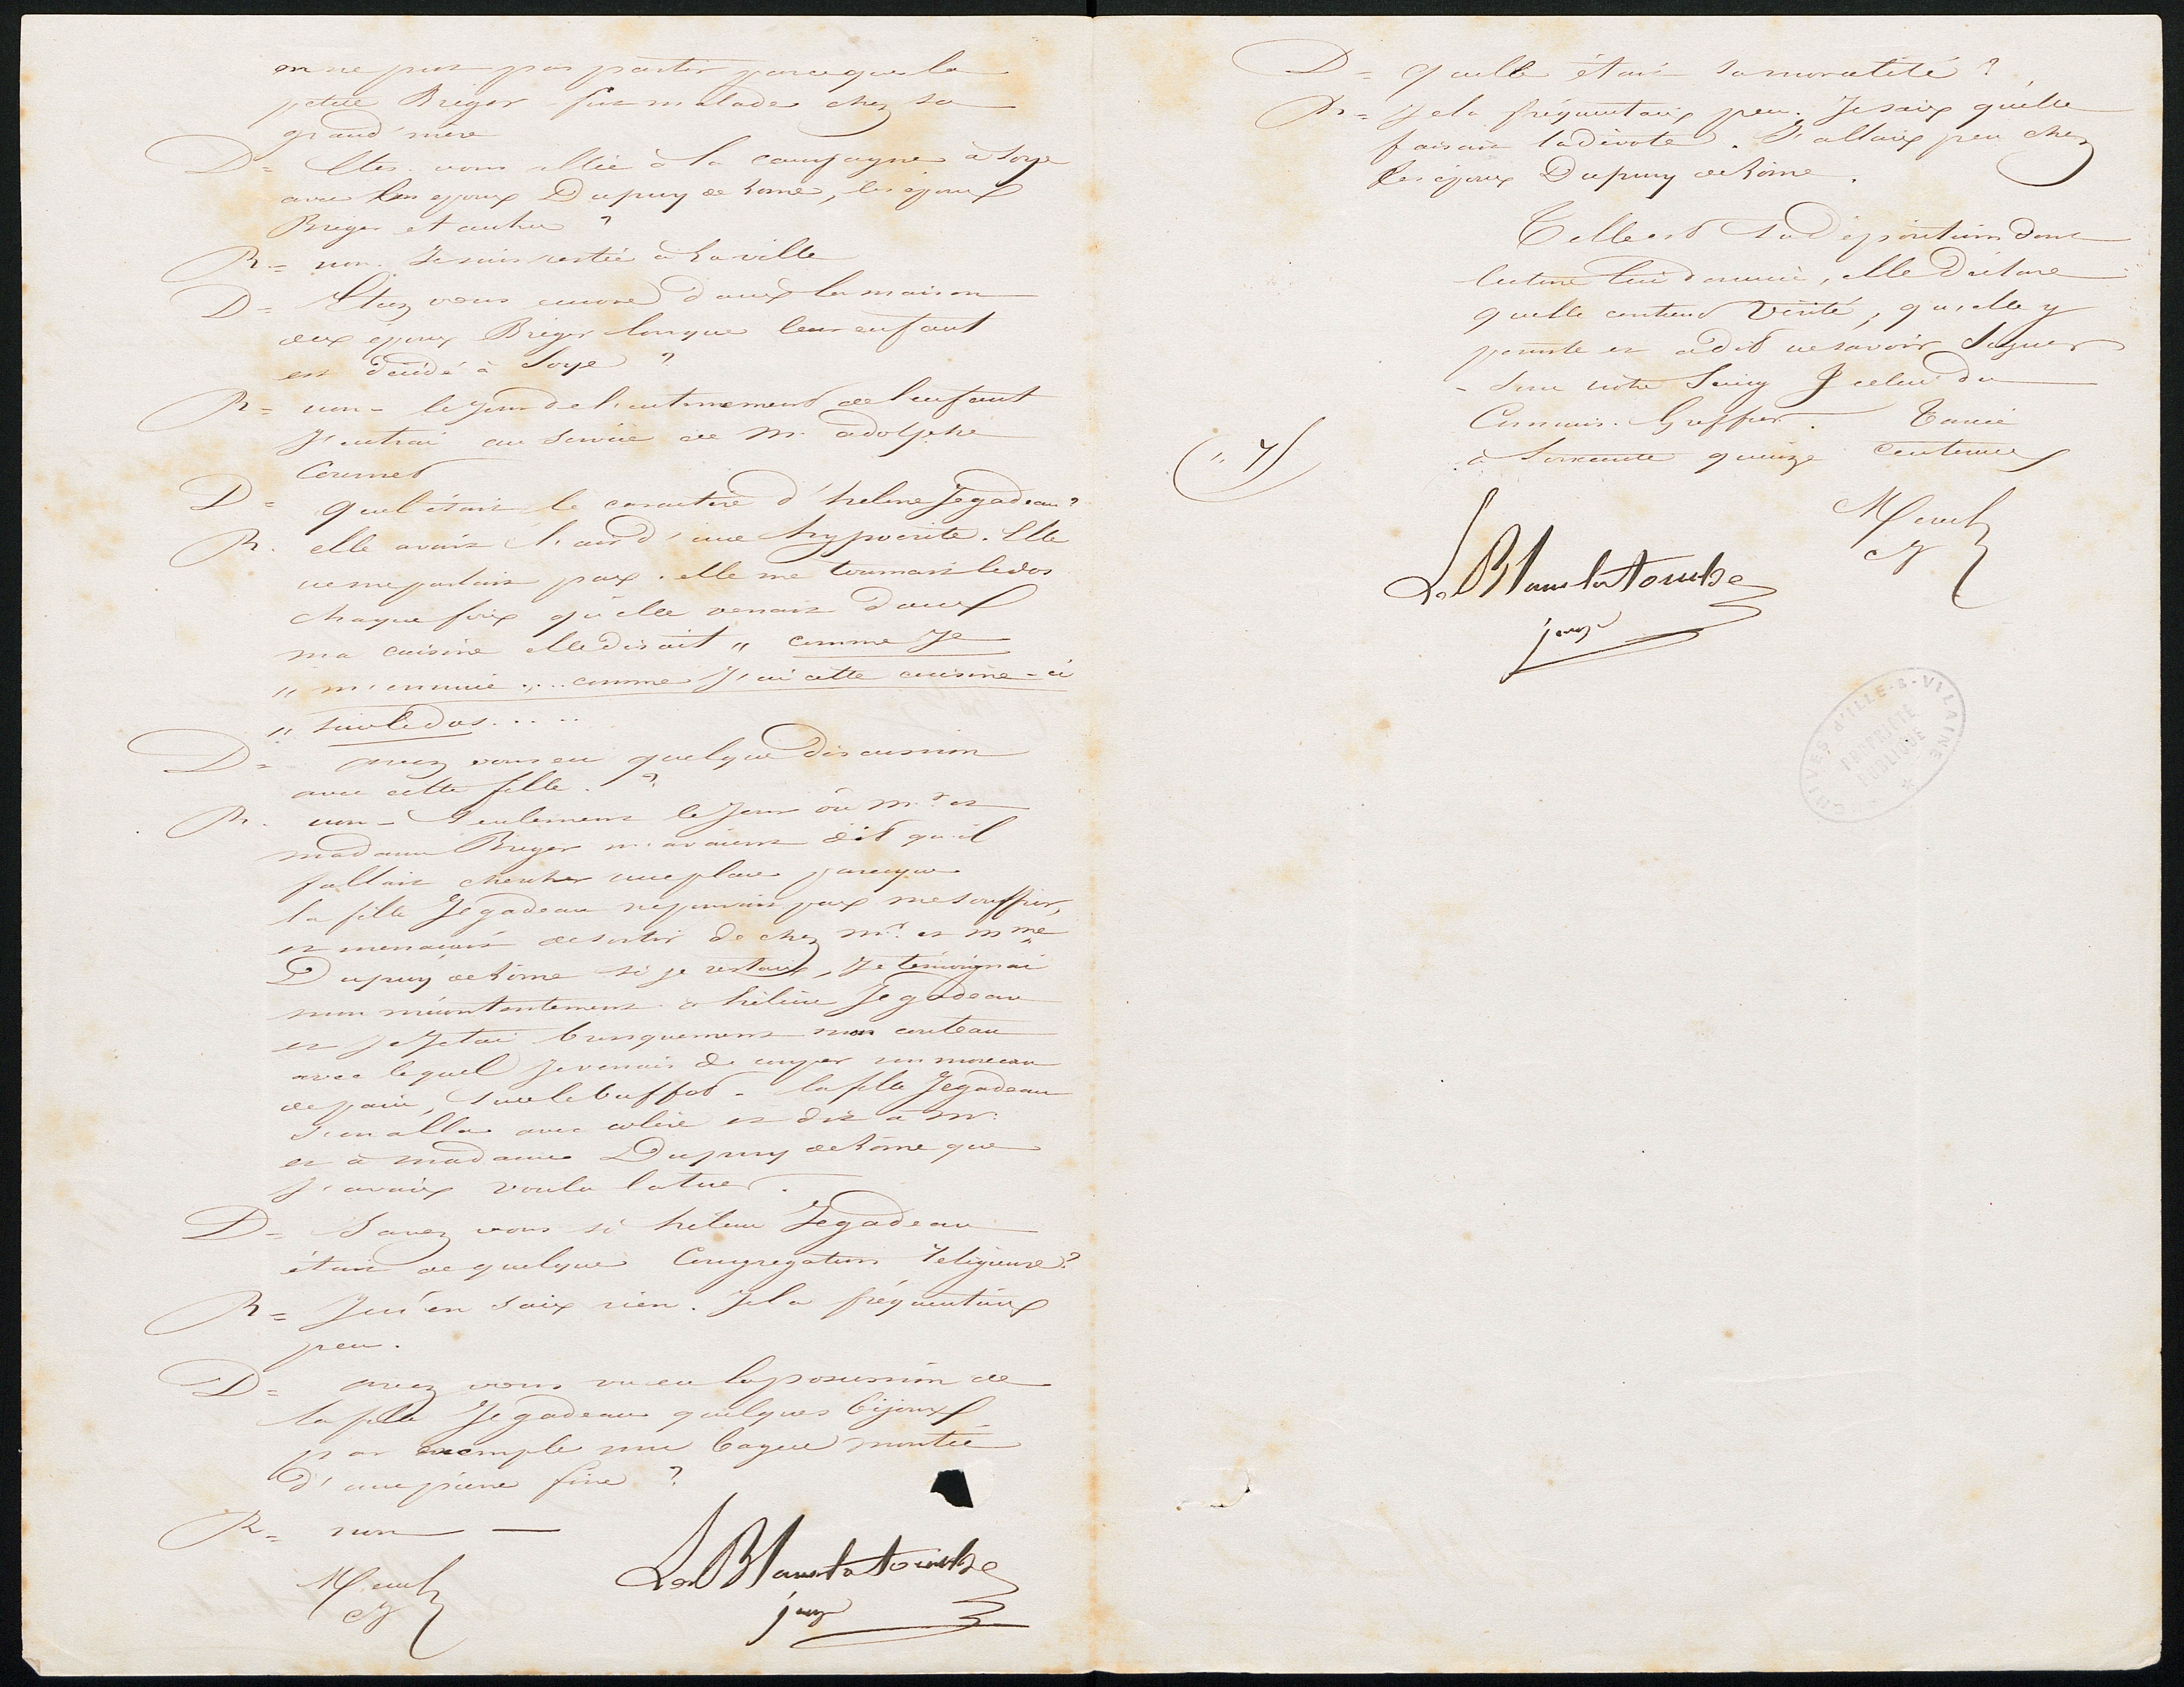 on ne put pas partir parce que la
petite Bréger fut malade chez sa
grand'mère
D = Etes-vous allée à la campagne à Soye
avec les époux Dupuy de Lome, les époux
Bréger et autres ?
R. = non. Je suis restée à la ville
D = Etiez vous encore dans la maison
des époux Bréger lorsque leur enfant
est décédé à Soye ?
R = non - le jour de l'enterrement de l'enfant
J'entrai au service de Mr adolphe
Cournet
D = quel était le caractère d'hélène Jegadeau ?
R. elle avait l'air d'une hypocrite. Elle
ne me parlait pas. elle me tournait le dos
chaque fois qu'elle venait dans
ma cuisine elle disait " comme Je
" m'ennuie .... comme J'ai cette cuisine-ci
" sur le dos .....
D = avez vous eu quelque discussion
avec cette fille. ?
R. non - Seulement le jour où Mr et
madame Bréger m'avaient dit qu'il
fallait chercher une place parceque
la fille Jegadeau ne pouvait pas me souffrir,
et menaçait de sortir de chez Mr. et Mme
Dupuy de Lôme si je restais, Je témoignai
mon mécontentement à hélène Jegadeau
et je jetai brusquement mon couteau
avec lequel je venais de couper un morceau
de pain, sur le buffet - la fille Jegadeau
s'en alla avec colère et dit à Mr.
et à madame Dupuy de Lôme que
j'avais voulu la tuer.
D - Savez vous si hélène Jegadeau
était de quelque Congregation religieuse ?
R = Je n'en sais rien. Je la fréquentais
peu.
D = avez vous vu en la possession de
la fille Jegadeau quelques bijoux
par exemple une bague montée
d'une pierre fine ?
R = non —
Le Blanc la tombe
juge
D = quelle était sa moralité ?
R = Je la fréquentais peu. Je sais qu'elle
faisait la dévote. J'allais peu chez
les époux Dupuy de Lôme.
Telle est sa déposition dont
lecture lui donnée, elle déclare
qu'elle contient Vérité, qu'elle y
persiste et a dit ne savoir Signer
- sous notre Seing & celui du
Commis. Greffier. Taxée
à Soixante quinze Centimes
Le Blanc la tombe
juge
ARCHIVES D'ILLE-&-VILAINE
PROPRIÉTÉ
PUBLIQUE